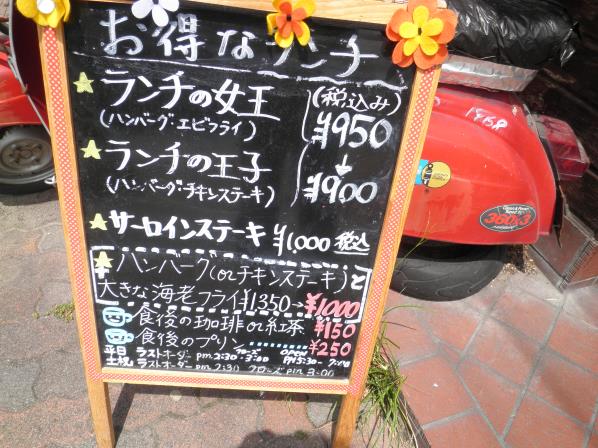 お得なランチ
ランチの女王
(ハンバーグ・エビフライ)
(税込み)
¥950
↓
¥900
ランチの王子
(ハンバーグ・チキンステーキ)
サーロインステーキ ¥1,000 税込
ハンバーグ(orチキンステーキ)と
大きな海老フライ ¥1350→¥1000
食後の珈琲or紅茶 ¥150
食後のプリン ¥250
平日 ラストオーダー pm.2:30 クローズ 3:00 OPEN PM5:30-
土祝 ラストオーダー pm.2:30 クローズ PM.3:00
360x3